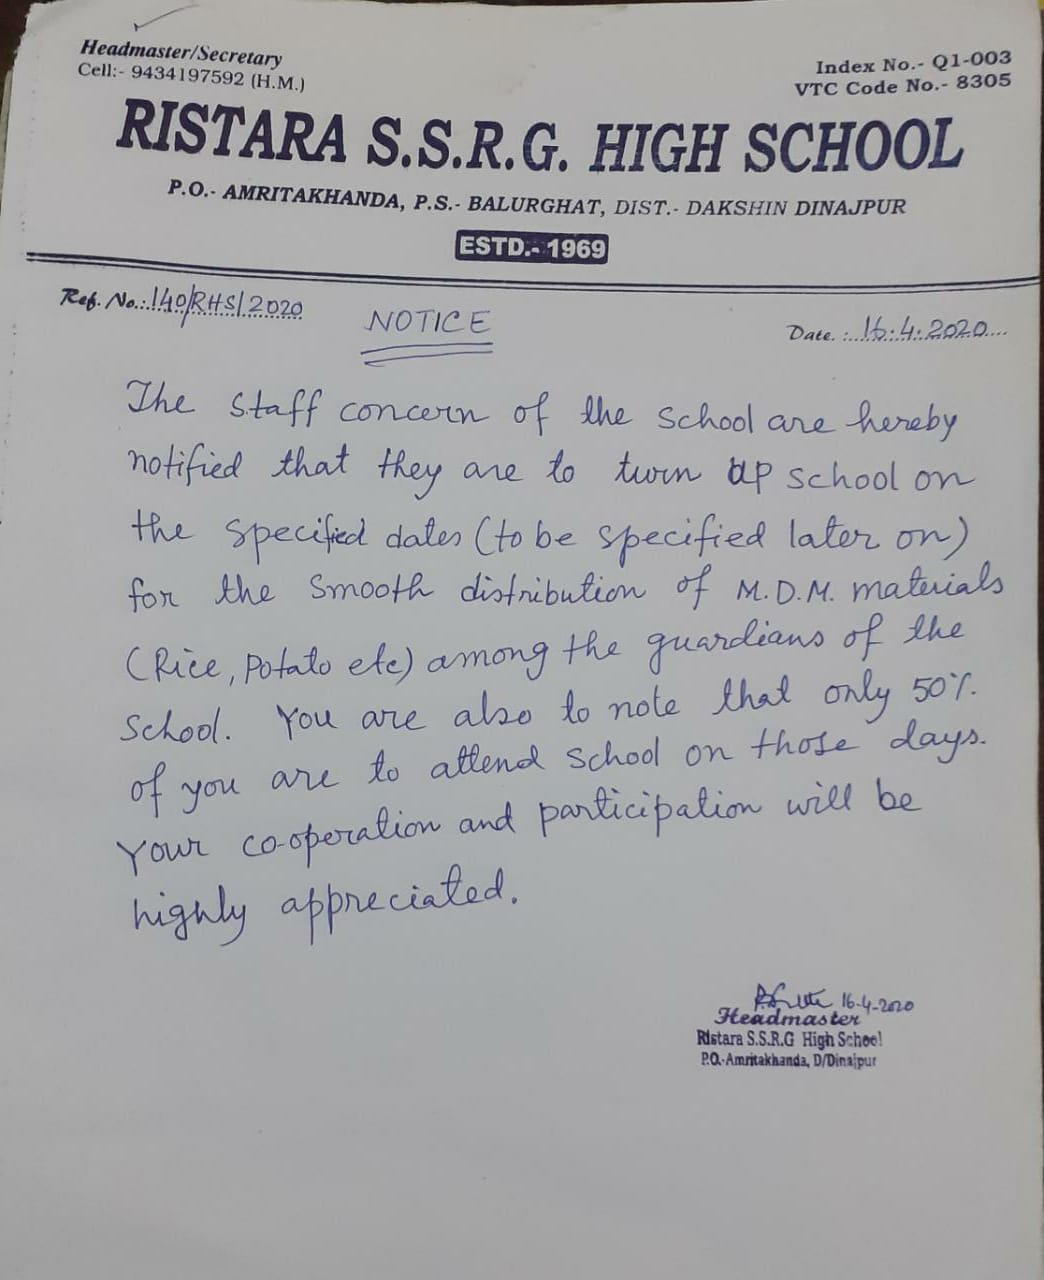 Headmaster/Secretary
Cell:- 9434197592 (H.M.)
Index No.- Q1-003
VTC Code No.- 8305
RISTARA S.S.R.G. HIGH SCHOOL
P.O.- AMRITAKHANDA, P.S.- BALURGHAT, DIST.- DAKSHIN DINAJPUR
ESTD.- 1969
Ref. No.: 140/RHS/2020
NOTICE
Date. : 16.4.2020
The staff concern of the school are hereby
notified that they are to turn up school on
the specified dates (to be specified later on)
for the smooth distribution of M.D.M. materials
(Rice, Potato etc) among the guardians of the
school. You are also to note that only 50%
of you are to attend school on those days.
Your co-operation and participation will be
highly appreciated.
16-4-2020
Headmaster
Ristara S.S.R.G High School
P.O.-Amritakhanda, D/Dinajpur